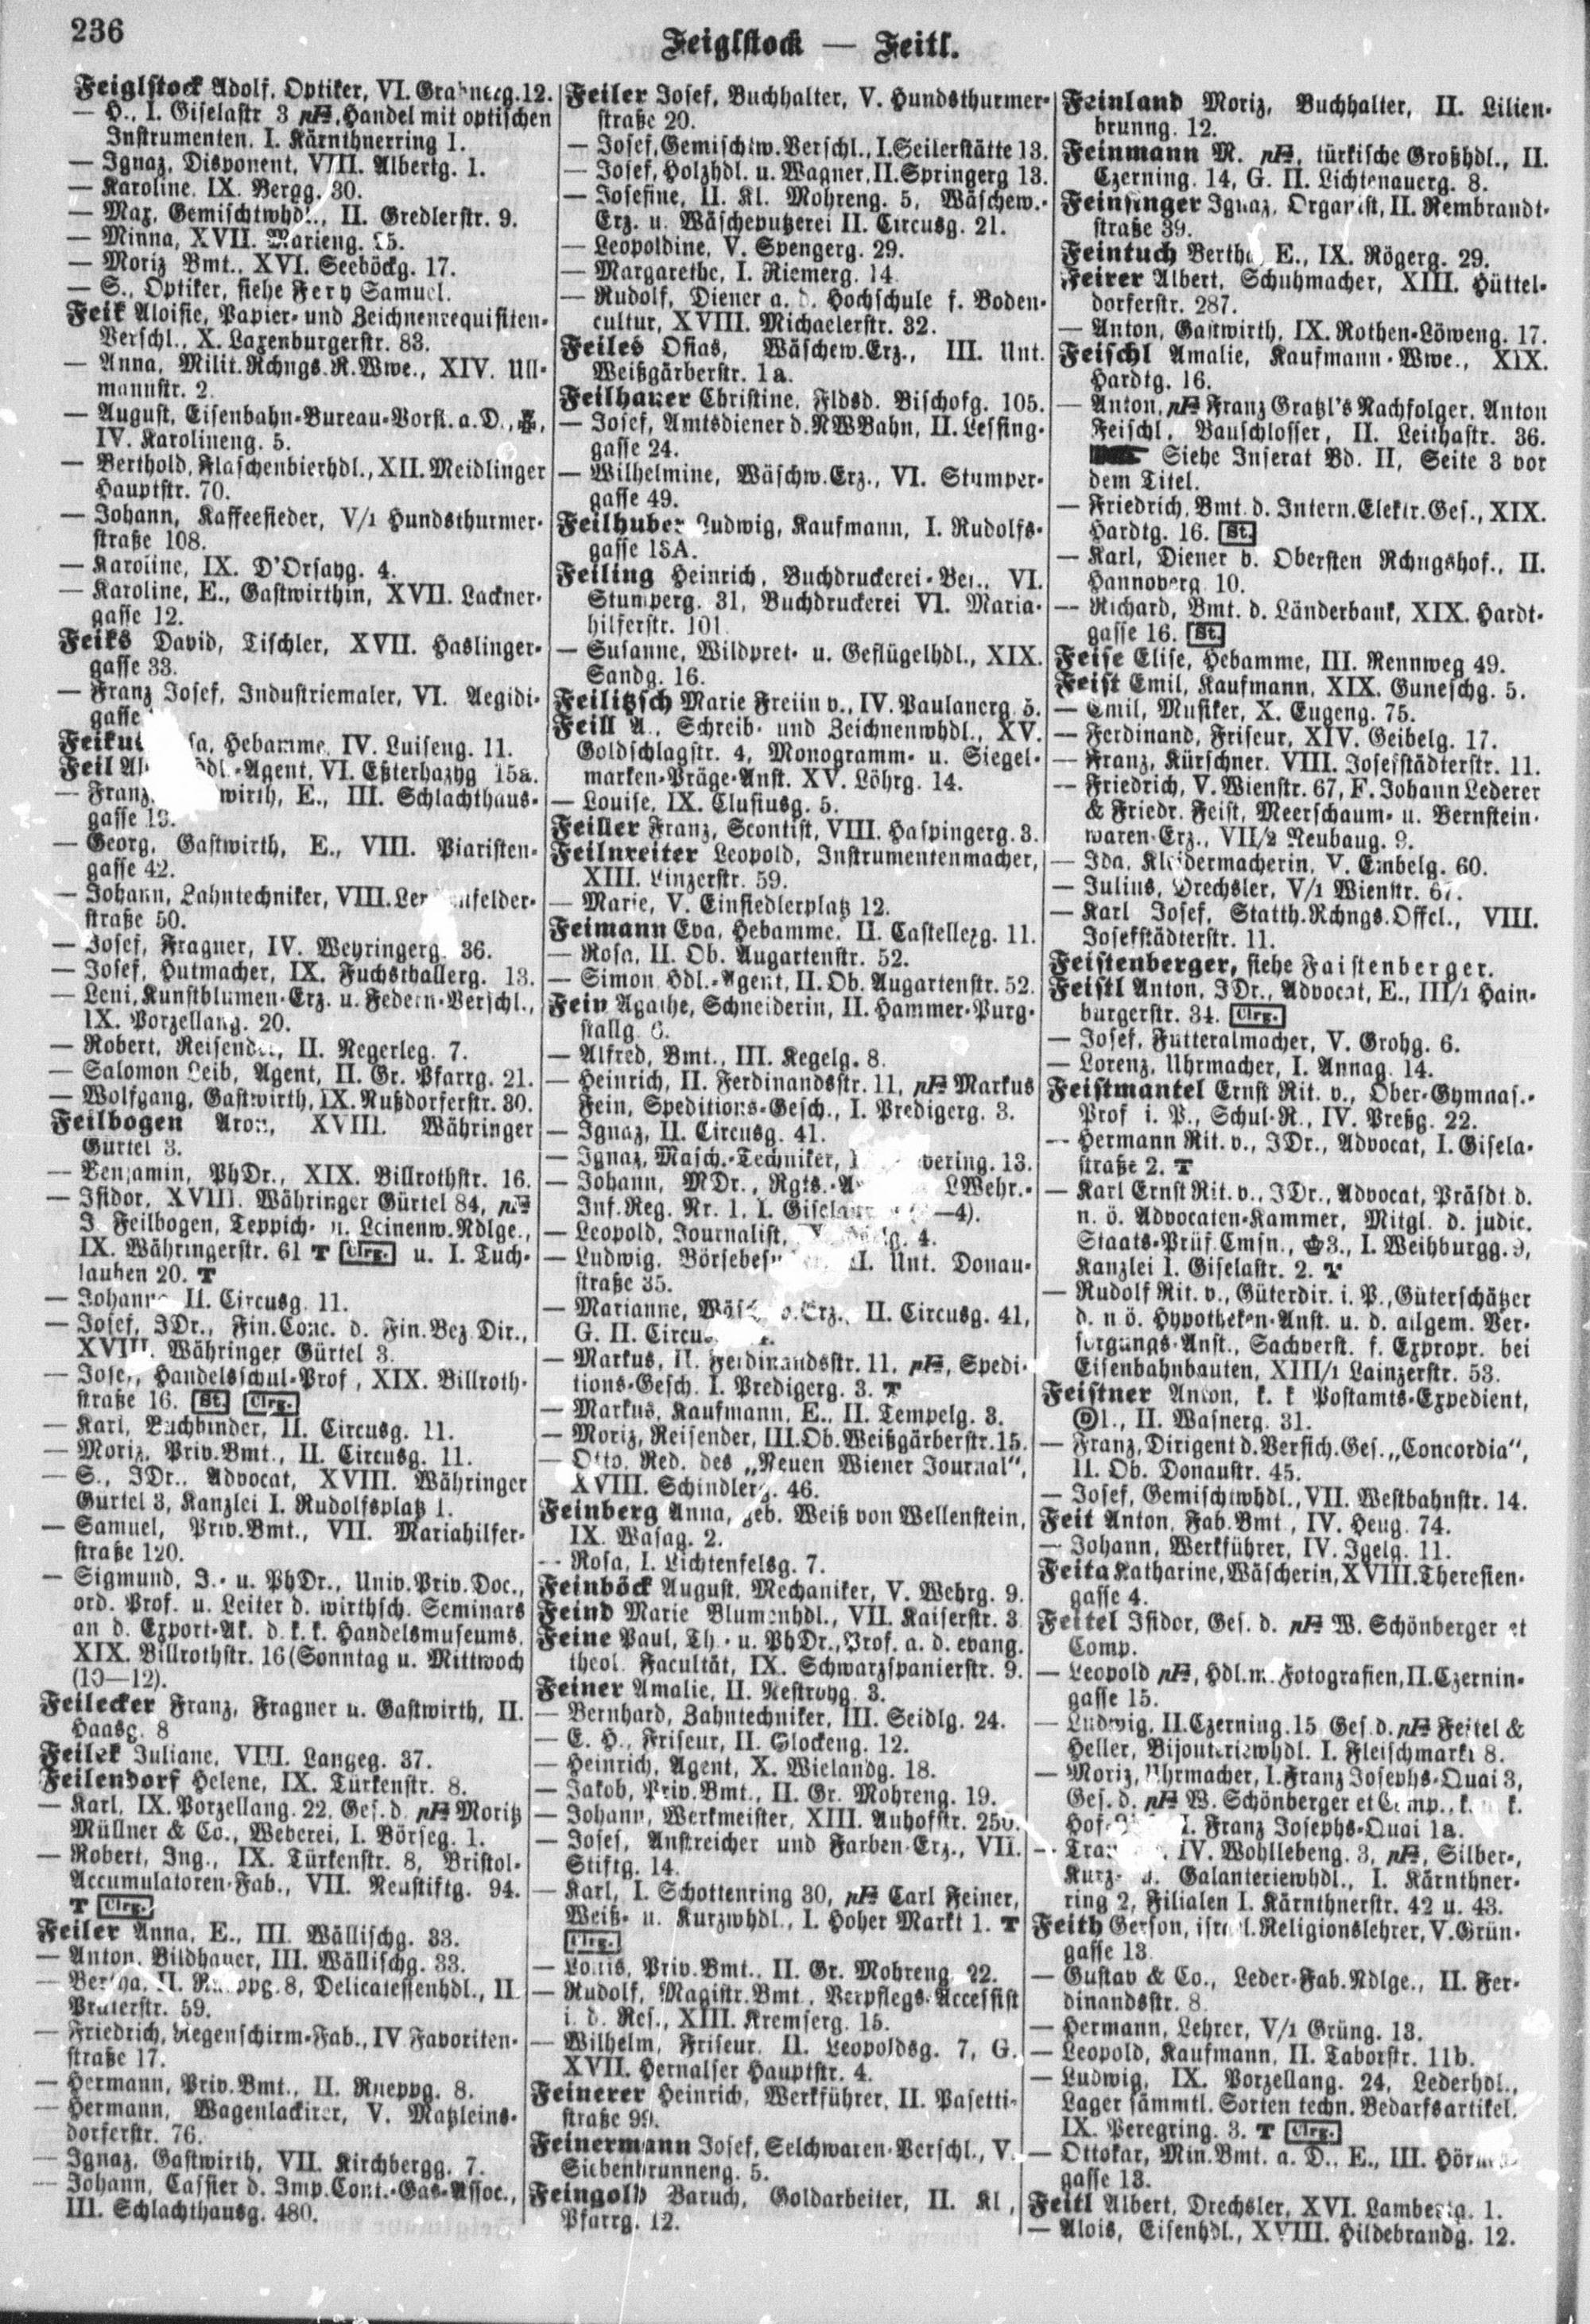 236
Feiglstock — Feitl.
Feiglstock Adolf, Optiker, VI. Grabnerg. 12.
— H., I. Giselastr 3 pF, Handel mit optischen
Instrumenten, I. Kärnthnerring 1.
— Ignaz, Disponent, VIII. Albertg. 1.
— Karoline, IX. Bergg. 30.
— Max, Gemischtwhdl., II. Gredlerstr. 9.
— Minna, XVII. Marieng.
— Moriz Bmt., XVI. Seeböckg. 17.
— S., Optiker, siehe Fery Samuel.
Feik Aloisie, Papier- und Zeichnenrequisiten-
Verschl., X. Laxenburgerstr. 83.
— Anna, Milit.Rchngs.R.Wwe., XIV. Ull-
mannstr. 2.
— August, Eisenbahn-Bureau-Vorst. a. D.,
IV. Karolineng. 5.
— Berthold, Flaschenbierhdl., XII. Meidlinger
Hauptstr. 70.
— Johann, Kaffeesieder, V/1 Hundsthurmer-
straße 108.
— Karoline, IX. D'Orsayg. 4.
— Karoline, E., Gastwirthin, XVII. Lackner-
gasse 12.
Feiks David, Tischler, XVII. Haslinger-
gasse 33.
— Franz Josef, Industriemaler, VI. Aegidi-
gasse
Hebamme, IV. Luiseng. 11.
Feil Hdl.-Agent, VI. Eßterhazyg 15a.
— Franz, E., III. Schlachthaus-
gasse
— Georg, Gastwirth, E., VIII. Piaristen-
gasse 42.
— Johann, Zahntechniker, VIII. Lerchenfelder-
straße 50.
— Josef, Fragner, IV. Weyringerg. 36.
— Josef, Hutmacher, IX. Fuchsthallerg. 13.
— Leni, Kunstblumen-Erz. u. Federn-Verschl.,
IX. Porzellang. 20.
— Robert, Reisender, II. Negerleg. 7.
— Salomon Leib, Agent, II. Gr. Pfarrg. 21.
— Wolfgang, Gastwirth, IX. Nußdorferstr. 30.
Feilbogen Aron, XVIII. Währinger
Gürtel 3.
— Benjamin, PhDr., XIX. Billrothstr. 16.
— Isidor, XVIII. Währinger Gürtel 84, pF
J. Feilbogen, Teppich- u. Leinenw.Ndlge.,
IX. Währingerstr. 61 T Clrg. u. I. Tuch-
lauben 20. T
— Johann, II. Circusg. 11.
— Josef, JDr., Fin.Conc. d. Fin.Bez.Dir.,
XVIII. Währinger Gürtel 3.
— Josef, Handelsschul-Prof, XIX. Billroth-
straße 16. St. Clrg.
— Karl, Buchbinder, II. Circusg. 11.
— Moriz, Priv.Bmt., II. Circusg. 11.
— S., JDr., Advocat, XVIII. Währinger
Gürtel 3, Kanzlei I. Rudolfsplatz 1.
— Samuel, Priv.Bmt., VII. Mariahilfer-
straße 120.
— Sigmund, J.- u. PhDr., Univ.Priv.Doc.,
ord. Prof. u. Leiter d. wirthsch. Seminars
an d. Export-Ak. d. k. k. Handelsmuseums,
XIX. Billrothstr. 16 (Sonntag u. Mittwoch
(10—12).
Feilecker Franz, Fragner u. Gastwirth, II.
Haasg. 8
Feilek Juliane, VIII. Langeg. 37.
Feilendorf Helene, IX. Türkenstr. 8.
— Karl, IX. Porzellang. 22, Ges. d. pF Moritz
Müllner & Co., Weberei, I. Börseg. 1.
— Robert, Ing., IX. Türkenstr. 8, Bristol-
Accumulatoren-Fab., VII. Neustiftg. 94.
T Clrg.
Feiler Anna, E., III. Wällischg. 33.
— Anton, Bildhauer, III. Wällischg. 33.
— Bertha, II. 8, Delicatessenhdl., II.
Praterstr. 59.
— Friedrich, Regenschirm-Fab., IV Favoriten-
straße 17.
— Hermann, Priv.Bmt., II. Rueppg. 8.
— Hermann, Wagenlackirer, V. Matzleins-
dorferstr. 76.
— Ignaz, Gastwirth, VII. Kirchbergg. 7.
— Johann, Cassier d. Imp.Cont.-Gas-Assoc.,
III. Schlachthausg. 480.
Feiler Josef, Buchhalter, V. Hundsthurmer-
straße 20.
— Josef, Gemischtw.Verschl., I. Seilerstätte 13.
— Josef, Holzhdl. u. Wagner, II. Springerg 13.
— Josefine, II. Kl. Mohreng. 5, Wäschew.-
Erz. u. Wäscheputzerei II. Circusg. 21.
— Leopoldine, V. Spengerg. 29.
— Margarethe, I. Riemerg. 14.
— Rudolf, Diener a. d. Hochschule f. Boden-
cultur, XVIII. Michaelerstr. 32.
Feiles Osias, Wäschew.Erz., III. Unt.
Weißgärberstr. 1a.
Feilhauer Christine, Fldsd. Bischofg. 105.
— Josef, Amtsdiener d. NWBahn, II. Lessing-
gasse 24.
— Wilhelmine, Wäschw.Erz., VI. Stumper-
gasse 49.
Feilhuber Ludwig, Kaufmann, I. Rudolfs-
gasse 18A.
Feiling Heinrich, Buchdruckerei-Bes., VI.
Stumperg. 31, Buchdruckerei VI. Maria-
hilferstr. 101
— Susanne, Wildpret- u. Geflügelhdl., XIX.
Sandg. 16.
Feilitzsch Marie Freiin v., IV. Paulanerg. 5.
Feill A., Schreib- und Zeichnenwhdl., XV.
Goldschlagstr. 4, Monogramm- u. Siegel-
marken-Präge-Anst. XV. Löhrg. 14.
— Louise, IX. Clusiusg. 5.
Feiller Franz, Scontist, VIII. Haspingerg. 3.
Feilnreiter Leopold, Instrumentenmacher,
XIII. Linzerstr. 59.
— Marie, V. Einsiedlerplatz 12.
Feimann Eva, Hebamme, II. Castellezg. 11.
— Rosa, II. Ob. Augartenstr. 52.
— Simon, Hdl.-Agent, II. Ob. Augartenstr. 52.
Fein Agathe, Schneiderin, II. Hammer-Purg-
stallg. 6.
— Alfred, Bmt., III. Kegelg. 8.
— Heinrich, II. Ferdinandsstr. 11, pF Markus
Fein, Speditions-Gesch., I. Predigerg. 3.
— Ignaz, II. Circusg. 41.
— Ignaz, Masch.-Techniker, 13.
— Johann, MDr., Rgts.- LWehr.-
Inf.Reg. Nr. 1, I. —4).
— Leopold, Journalist, 4.
— Ludwig, II. Unt. Donau-
straße 35.
— Marianne, II. Circusg. 41,
G. II.
— Markus, II. Ferdinandsstr. 11, pF, Spedi-
tions-Gesch. I. Predigerg. 3. T
— Markus, Kaufmann, E., II. Tempelg. 3.
— Moriz, Reisender, III. Ob. Weißgärberstr. 15.
— Otto, Red. des „Neuen Wiener Journal“,
XVIII. Schindlerg. 46.
Feinberg Anna, geb. Weiß von Wellenstein,
IX. Wasag. 2.
— Rosa, I. Lichtenfelsg. 7.
Feinböck August, Mechaniker, V. Wehrg. 9.
Feind Marie Blumenhdl., VII. Kaiserstr. 3
Feine Paul, Th.- u. PhDr., Prof. a. d. evang.
theol. Facultät, IX. Schwarzspanierstr. 9.
Feiner Amalie, II. Nestroyg. 3.
— Bernhard, Zahntechniker, III. Seidlg. 24.
— E. H., Friseur, II. Glockeng. 12.
— Heinrich, Agent, X. Wielandg. 18.
— Jakob, Priv.Bmt., II. Gr. Mohreng. 19.
— Johann, Werkmeister, XIII. Auhofstr.
— Josef, Anstreicher und Farben-Erz., VII.
Stiftg. 14.
— Karl, I. Schottenring 30, pF Carl Feiner,
Weiß- u. Kurzwhdl., I. Hoher Markt 1. T
Clrg.
— Louis, Priv.Bmt., II. Gr. Mohreng. 22.
— Rudolf, Magistr.Bmt., Verpflegs-Accessist
i. d. Res., XIII. Kremserg. 15.
— Wilhelm, Friseur, II. Leopoldsg. 7, G.
XVII. Hernalser Hauptstr. 4.
Feinerer Heinrich, Werkführer, II. Pasetti-
straße 99.
Feinermann Josef, Selchwaren-Verschl., V.
Siebenbrunneng. 5.
Feingold Baruch, Goldarbeiter, II. Kl.
Pfarrg. 12.
Feinland Moriz, Buchhalter, II. Lilien-
brunng. 12.
Feinmann N. pF, türkische Großhdl., II.
Czerning. 14, G. II. Lichtenauerg. 8.
Feinsinger Ignaz, Organist, II. Rembrandt-
straße 39.
Feintuch Bertha E., IX. Rögerg. 29.
Feirer Albert, Schuhmacher, XIII. Hüttel-
dorferstr. 287.
— Anton, Gastwirth, IX. Rothen-Löweng. 17.
Feischl Amalie, Kaufmann-Wwe., XIX.
Hardtg. 16.
— Anton, pF Franz Gratzl's Nachfolger, Anton
Feischl, Bauschlosser, II. Leithastr. 36.
Siehe Inserat Bd. II, Seite 3 vor
dem Titel.
— Friedrich, Bmt. d. Intern.Elektr.Ges., XIX.
Hardtg. 16. St.
— Karl, Diener b. Obersten Rchngshof., II.
Hannoverg. 10.
— Richard, Bmt. d. Länderbank, XIX. Hardt-
gasse 16. St.
Feise Elise, Hebamme, III. Rennweg 49.
Feist Emil, Kaufmann, XIX. Guneschg. 5.
— Emil, Musiker, X. Eugeng. 75.
— Ferdinand, Friseur, XIV. Geibelg. 17.
— Franz, Kürschner, VIII. Josefstädterstr. 11.
— Friedrich, V. Wienstr. 67, F. Johann Lederer
& Friedr. Feist, Meerschaum- u. Bernstein-
waren-Erz., VII/2 Neubaug. 9.
— Ida, Kleidermacherin, V. Embelg. 60.
— Julius, Drechsler, V/1 Wienstr. 67.
— Karl Josef, Statth.Rchngs.Offcl., VIII.
Josefstädterstr. 11.
Feistenberger, siehe Faistenberger.
Feistl Anton, JDr., Advocat, E., III/1 Hain-
burgerstr. 34. Clrg.
— Josef, Futteralmacher, V. Grohg. 6.
— Lorenz, Uhrmacher, I. Annag. 14.
Feistmantel Ernst Rit. v., Ober-Gymnas.-
Prof i. P., Schul-R., IV. Preßg. 22.
— Hermann Rit. v., JDr., Advocat, I. Gisela-
straße 2. T
— Karl Ernst Rit. v., JDr., Advocat, Präsdt. d.
n. ö. Advocaten-Kammer, Mitgl. d. judic.
Staats-Prüf.Cmsn., 3., I. Weihburgg. 9,
Kanzlei I. Giselastr. 2. T
— Rudolf Rit. v., Güterdir. i. P., Güterschätzer
d. n ö. Hypotheken-Anst. u. d. allgem. Ver-
sorgungs-Anst., Sachverst. f. Expropr. bei
Eisenbahnbauten, XIII/1 Lainzerstr. 53.
Feistner Anton, k. k Postamts-Expedient,
1., II. Wasnerg. 31.
— Franz, Dirigent d. Versich.Ges. „Concordia“,
II. Ob. Donaustr. 45.
— Josef, Gemischtwhdl., VII. Westbahnstr. 14.
Feit Anton, Fab.Bmt., IV. Heug. 74.
— Johann, Werkführer, IV. Igelg. 11.
Feita Katharine, Wäscherin, XVIII. Theresien-
gasse 4.
Feitel Isidor, Ges. d. pF W. Schönberger et
Comp.
— Leopold pF, Hdl. m. Fotografien, II. Czernin-
gasse 15.
— Ludwig, II. Czerning. 15, Ges. d. pF Feitel &
Heller, Bijouteriewhdl. I. Fleischmarkt 8.
— Moriz, Uhrmacher, I. Franz Josephs-Quai 3,
Ges. d. pF W. Schönberger et Comp., k. u. k.
I. Franz Josephs-Quai 1a.
— IV. Wohllebeng. 3, pF, Silber-,
Kurz- u. Galanteriewhdl., I. Kärnthner-
ring 2, Filialen I. Kärnthnerstr. 42 u. 43.
Feith Gerson, israel. Religionslehrer, V. Grün-
gasse 13.
— Gustav & Co., Leder-Fab.Ndlge., II. Fer-
dinandsstr. 8.
— Hermann, Lehrer, V/1 Grüng. 13.
— Leopold, Kaufmann, II. Taborstr. 11b.
— Ludwig, IX. Porzellang. 24, Lederhdl.,
Lager sämmtl. Sorten techn. Bedarfsartikel,
IX. Peregring. 3. T Clrg.
— Ottokar, Min.Bmt. a. D., E., III.
gasse 13.
Feitl Albert, Drechsler, XVI. Lambertg. 1.
— Alois, Eisenhdl., XVIII. Hildebrandg. 12.